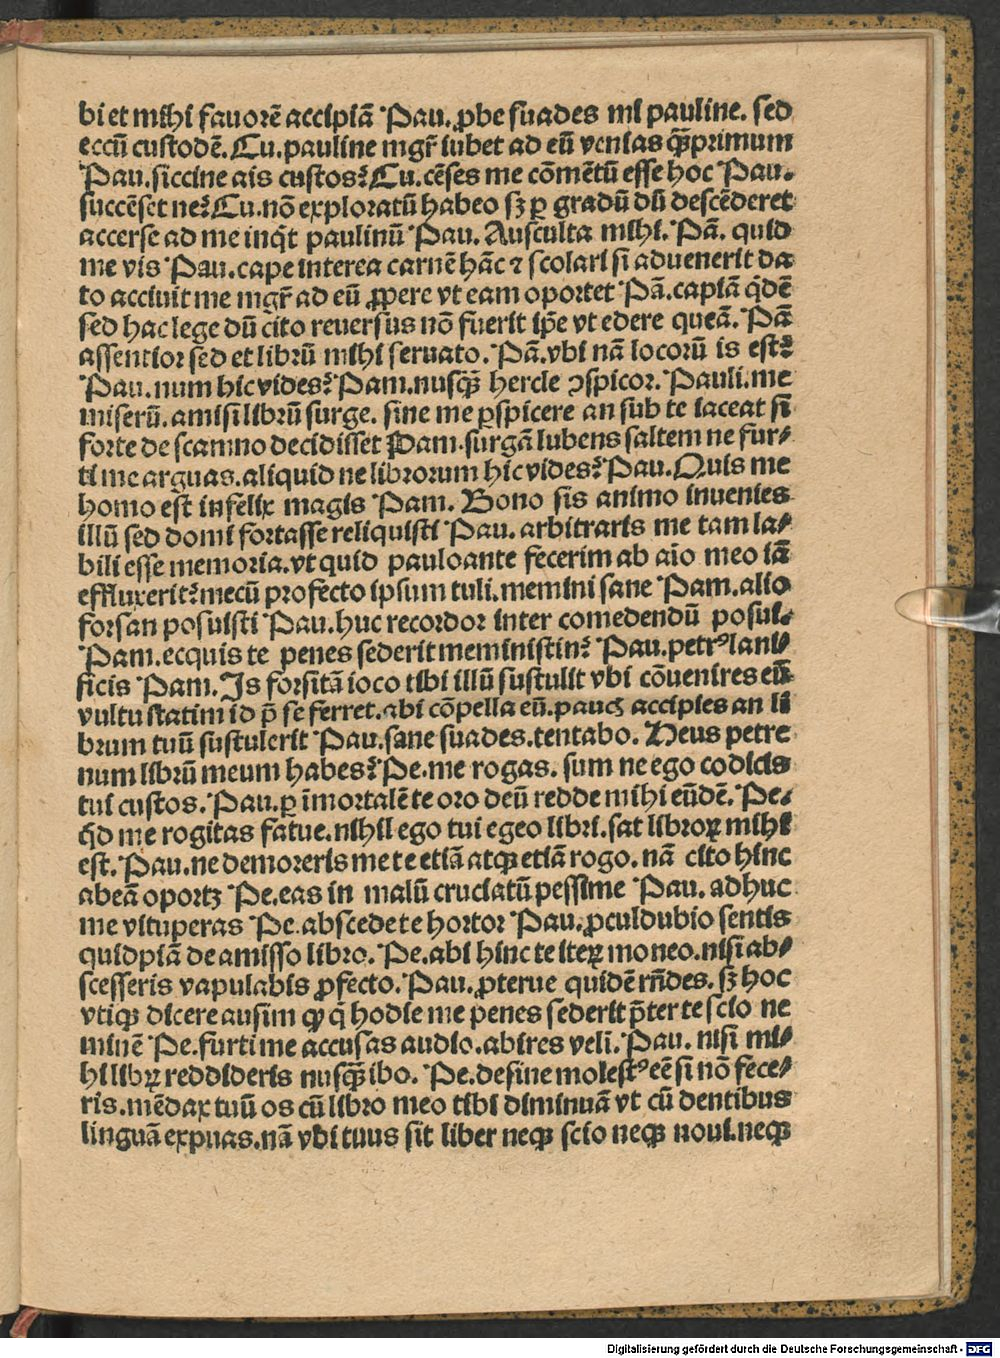 bi et mihi fauorē accipiā Pau. ꝓbe suades mi pauline. sed
eccū custodē. Cu. pauline mgr̄ iubet ad eū venias qꝫprimum
Pau. siccine ais custos? Cu. cēses me cōmētū esse hoc Pau.
succēset ne? Cu. nō exploratū habeo sꝫ ꝑ gradū dū descēderet
accerse ad me inqͥt paulinū Pau. Ausculta mihi. Pā. quid
me vis Pau. cape interea carnē hāc ⁊ scolari si aduenerit da
to acciuit me mgr̄ ad eū ꝓpere vt eam oportet Pā. capiā qͥdē
sed hac lege dū cito reuersus nō fuerit ip̄e vt edere queā. Pā
assentior sed et librū mihi seruato. Pā. vbi nā locorū is est?
Pau. num hic vides? Pam. nusqꝫ hercle ꝯspicor. Pauli. me
miserū. amisi librū surge. sine me ꝑspicere an sub te iaceat si
forte de scamno decidisset Pam. surgā lubens saltem ne fur⸗
ti me arguas. aliquid ne librorum hic vides? Pau. Quis me
homo est infelix magis Pam. Bono sis animo inuenies
illū sed domi fortasse reliquisti Pau. arbitraris me tam la⸗
bili esse memoria. vt quid pauloante fecerim ab aīo meo iā
effluxerit? mecū profecto ipsum tuli. memini sane Pam. alio
forsan posuisti Pau. huc recordor inter comedendū posui.
Pam. ecquis te penes sederit meministin? Pau. petrꝰ lani⸗
ficis Pam. Is forsitā ioco tibi illū sustulit vbi cōuenires eū
vultu statim id p̄ se ferret. abi cōpella eū. paucꝭ accipies an li
brum tuū sustulerit Pau. sane suades. tentabo. Heus petre
num librū meum habes? Pe. me rogas. sum ne ego codicis
tui custos. Pau. ꝑ īmortalē te oro deū redde mihi eūdē. Pe.
qͥd me rogitas fatue. nihil ego tui egeo libri. sat libroꝝ mihi
est. Pau. ne demoreris me te etiā atqꝫ etiā rogo. nā cito hinc
abeā oportꝫ Pe. eas in malū cruciatū pessime Pau. adhuc
me vituperas Pe. abscede te hortor Pau. ꝓculdubio sentis
quidpiā de amisso libro. Pe. abi hinc te iteꝝ moneo. nisi ab⸗
scesseris vapulabis ꝓfecto. Pau. ꝓterue quidē rn̄des. sꝫ hoc
vtiqꝫ dicere ausim ꝙ qͥ hodie me penes sederit p̄ter te scio ne
minē Pe. furti me accusas audio. abires veli. Pau. nisi mi⸗
hi libꝝ reddideris nusqꝫ ibo. Pe. desine molestꝰ eē si nō fece⸗
ris. mēdax tuū os cū libro meo tibi diminuā vt cū dentibus
linguā expuas. nā vbi tuus sit liber neqꝫ scio neqꝫ noui. neqꝫ
Digitalisierung gefördert durch die Deutsche Forschungsgemeinschaft - DFG